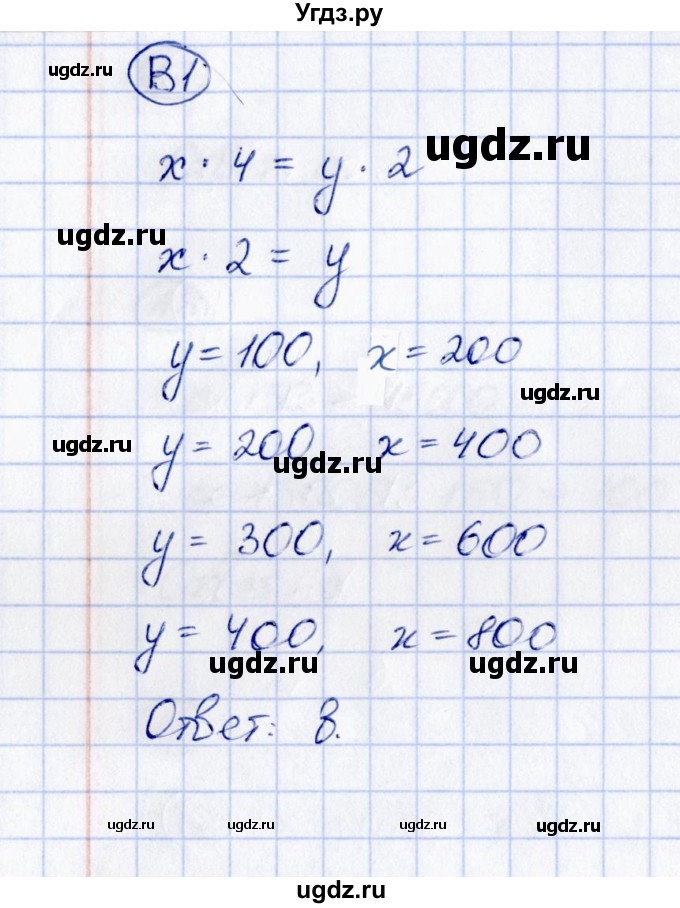 Угдз.ру
ugdz.ru
В1
x · 4 = y · 2 ugdz.ru
ugdz.ru
x · 2 = y
y = 100, x = 200
ugdz.ru
ugdz.ru y = 200 x = 400
ugdz.ru
y = 300, x = 600
y = 400, x = 800
ugdz.ru ugdz.ru
Ответ: 8.
ugdz.ru ugdz.ru ugdz.ru ugdz.ru
ugdz.ru